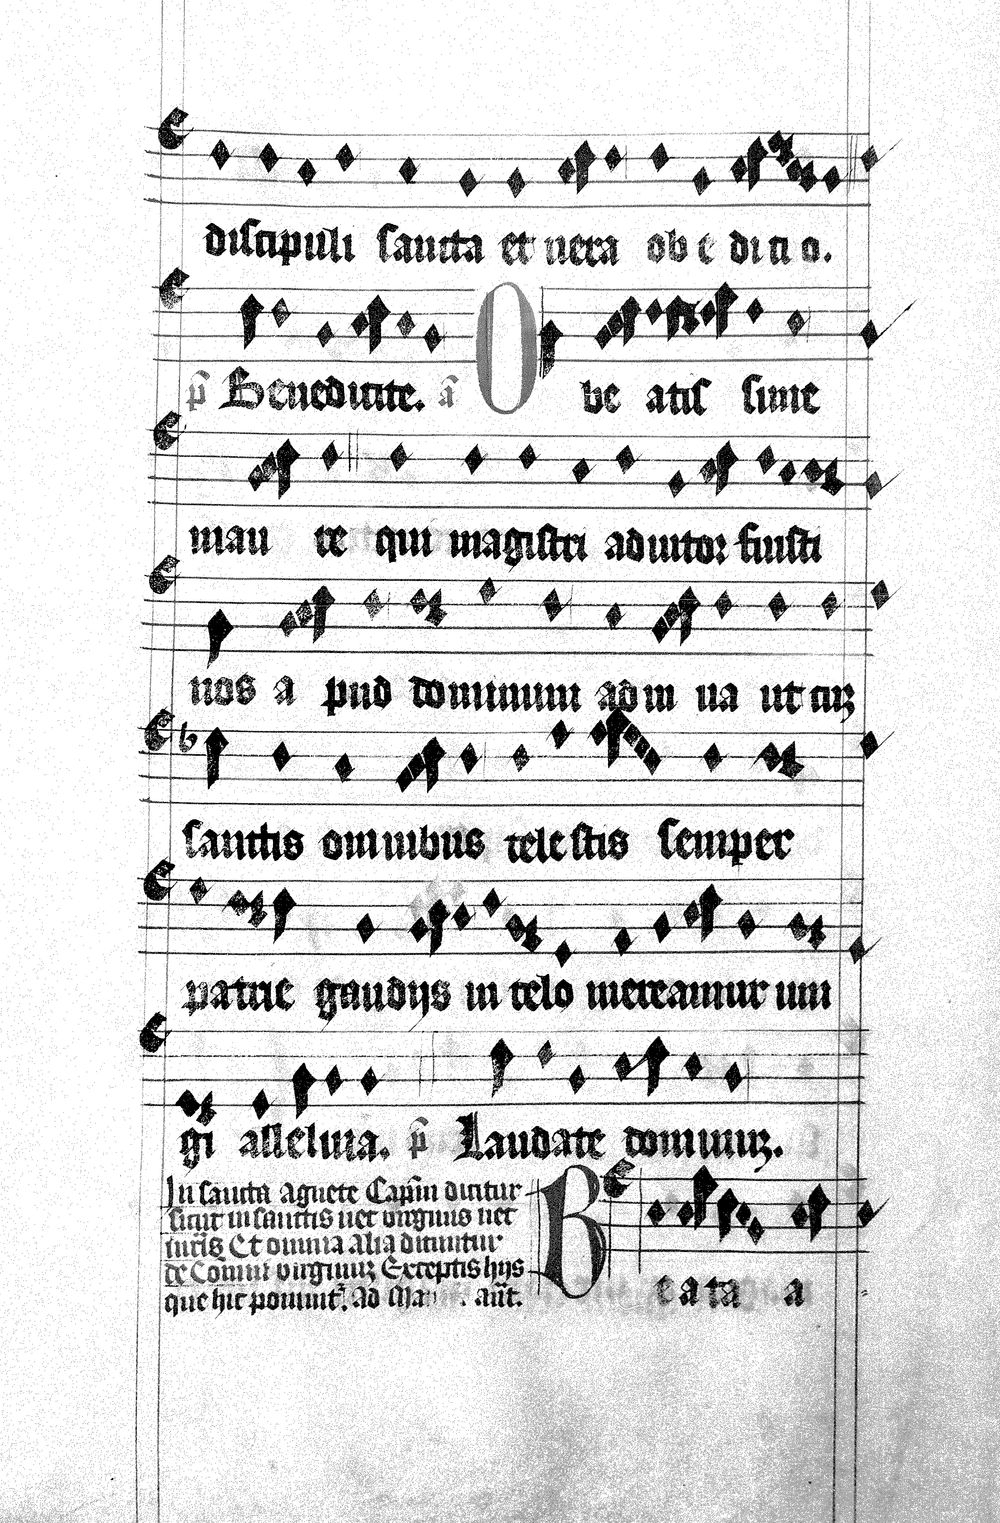 discipuli sancta et vera obe ditio.
p̄ Benedicite. ā O be atis sime
mau re qui magistri adiutor fuisti
nos a pud dominum adiu ua ut cuʒ
sanctis omnibus celestis semper
patrie gaudijs in celo mereamur iun
gi alleluia. p̄ Laudate dominuʒ.
In sancta Agnete Capīm dicitur
sicut in sanctis nec virginis nec
Et omnia alia dicuntur
de Cōmūi virginuʒ Exceptis hijs
que hic ponunt᷑. Ad añt.
B e a ta a